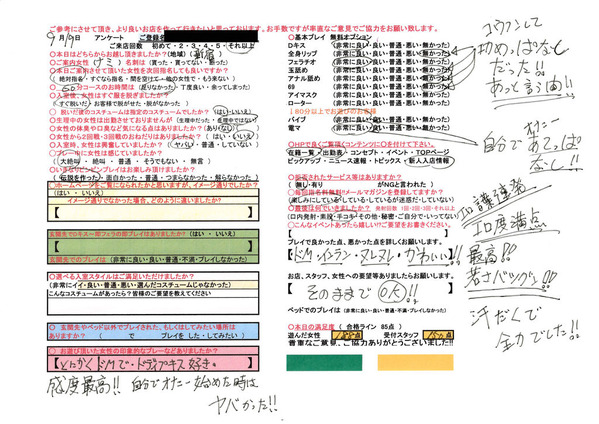 ご参考にさせて頂き、より良いお店を作って行きたいと思っております。お手数ですが率直なご意見でご協力をお願い致します。
9月19日 アンケート ご登録名
ご来店回数 初めて・2・3・4・5・それ以上
〇本日はどちらからお越し頂きましたか? (地域)( 新宿 )
〇ご案内女性 ( ナミ ) 名刺は (貰った・貰ってない・断った)
〇本日ご案内させて頂いた女性を次回指名しても良いですか?
( 絶対指名・すぐなら指名・間を空けて・他の女性で・もう来ない )
〇( 60 )分コースのお時間は (足りなかった・丁度良い・余ってしまった)
〇入室後、女性はすぐ服を脱ぎましたか?
(すぐ脱いだ・お客様で脱がせた・脱がなかった)
〇脱いだ後のコスチュームは指定のコスチュームでしたか? (はい・いいえ)
〇生理中の女性は出勤させておりませんが (生理中だった・生理中ではない)
〇女性の体臭や口臭など気になる点はありましたか? (あり・なし)
〇女性から2回戦・3回戦のおねだりはありましたか? ( はい・いいえ )
〇入室時、女性は興奮していましたか? (ヤバい・普通・していない)
〇プレー中に女性は感じていましたか?
(大絶叫・絶叫・普通・そうでもない・無言)
〇いきなりピンピンプレイはお楽しみ頂けましたか?
(伝説を作った・面白かった・普通・つまらなかった・解らなかった)
〇ホームページをご覧になられたかと思いますが、イメージ通りでしたか?
(はい・いいえ)
イメージ通りでなかった場合、どのように違いましたか?
【 】
玄関先でキス一杯フェラ即プレイはありましたか? (はい・いいえ)
【 】
玄関先でのプレイは (非常に良い・良い・普通・不満・プレイしなかった)
〇選べる入室スタイルはご満足いただけましたか?
(非常にイイ・良い・普通・悪い・選んだコスチュームじゃなかった)
こんなコスチュームがあったら?皆様のご要望を教えてください
【 】
〇 玄関先やベッド以外でプレイされた、もしくはしてみたい場所は
ありますか? ( で プレイを した・してみたい )
〇お遊び頂いた女性の印象的なプレーなどありましたか?
【とにかくドMで・ドラプキス好き。
感度最高!! 自分でオナニー始めた時は
ヤバかった!!
〇基本プレイ 無料オプション
Dキス (非常に良い・良い・普通・悪い・無かった)
全身リップ (非常に良い・良い・普通・悪い・無かった)
フェラチオ (非常に良い・良い・普通・悪い・無かった)
玉舐め (非常に良い・良い・普通・悪い・無かった)
アナル舐め (非常に良い・良い・普通・悪い・無かった)
69 (非常に良い・良い・普通・悪い・無かった)
アイマスク (非常に良い・良い・普通・悪い・無かった)
ローター (非常に良い・良い・普通・悪い・無かった)
180分以上でお遊びのお客様
バイブ (非常に良い・良い・普通・悪い・無かった)
電マ (非常に良い・良い・普通・悪い・無かった)
〇HPで良くご覧頂くコンテンツに〇を付けて下さい。
在籍一覧・出勤表・コンセプト・イベント・TOPページ
ピックアップ・ニュース速報・トピックス・新人入店情報
〇拒否されたサービス等はありますか?
( 無し・有り がNGと言われた )
〇毎回指名料無料!!メールマガジンを登録しますか?
(楽しみにしている・している・しているが迷惑・していない)
〇最後は何でいきましたか? 発射回数 1回・2回・3回・それ以上
(口内発射・素股・手コキ・その他・秘密・ご自分で・いってない)
〇こんなイベントあったら嬉しい!?ご要望をお書きください。
【 】
プレイで良かった点、悪かった点を詳しくお願いします。
【ドM・インラン・ヌレヌレ・かわいい!!】
お店、スタッフ、女性への要望等ありましたらお願いします。
【 そのままでOK!! 】
ベッドでのプレイは (非常に良い・良い・普通・不満・プレイしなかった)
〇本日の満足度 ( 合格ライン 85点 )
遊んだ女性 点 受付スタッフ 点
貴重なご意見、ご協力ありがとうございました!!
コウフンして
初めっぱなし
だった!!
あっと言う間!!
自分でオナニー
てっぱ
なし!!
エロ護連発
エロ度満点
最高!!
若さバツグン!!
汗だくで
全力でした!!